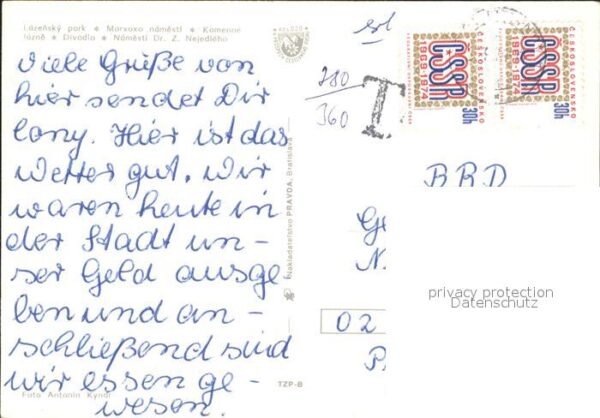 Lázeňský park • Marxovo náměstí • Kamenné
lázně • Divadlo • Náměstí Dr. Z. Nejedlého
Viele Grüße von
hier sendet Dir
Cony. Hier ist das
Wetter gut. Wir
waren heute in
der Stadt un-
ser Geld ausge
ben und an-
schließend sind
wir essen ge-
wesen.
Foto Antonín Kyndr
TZP-8
Nakladateľstvo PRAVDA, Bratislava
280
360
T
ČESKOSLOVENSKO
ČSSR
1969-1974
30h
ČESKOSLOVENSKO
ČSSR
1969-1974
30h
BRD
Ge
N.
02
P
privacy protection
Datenschutz